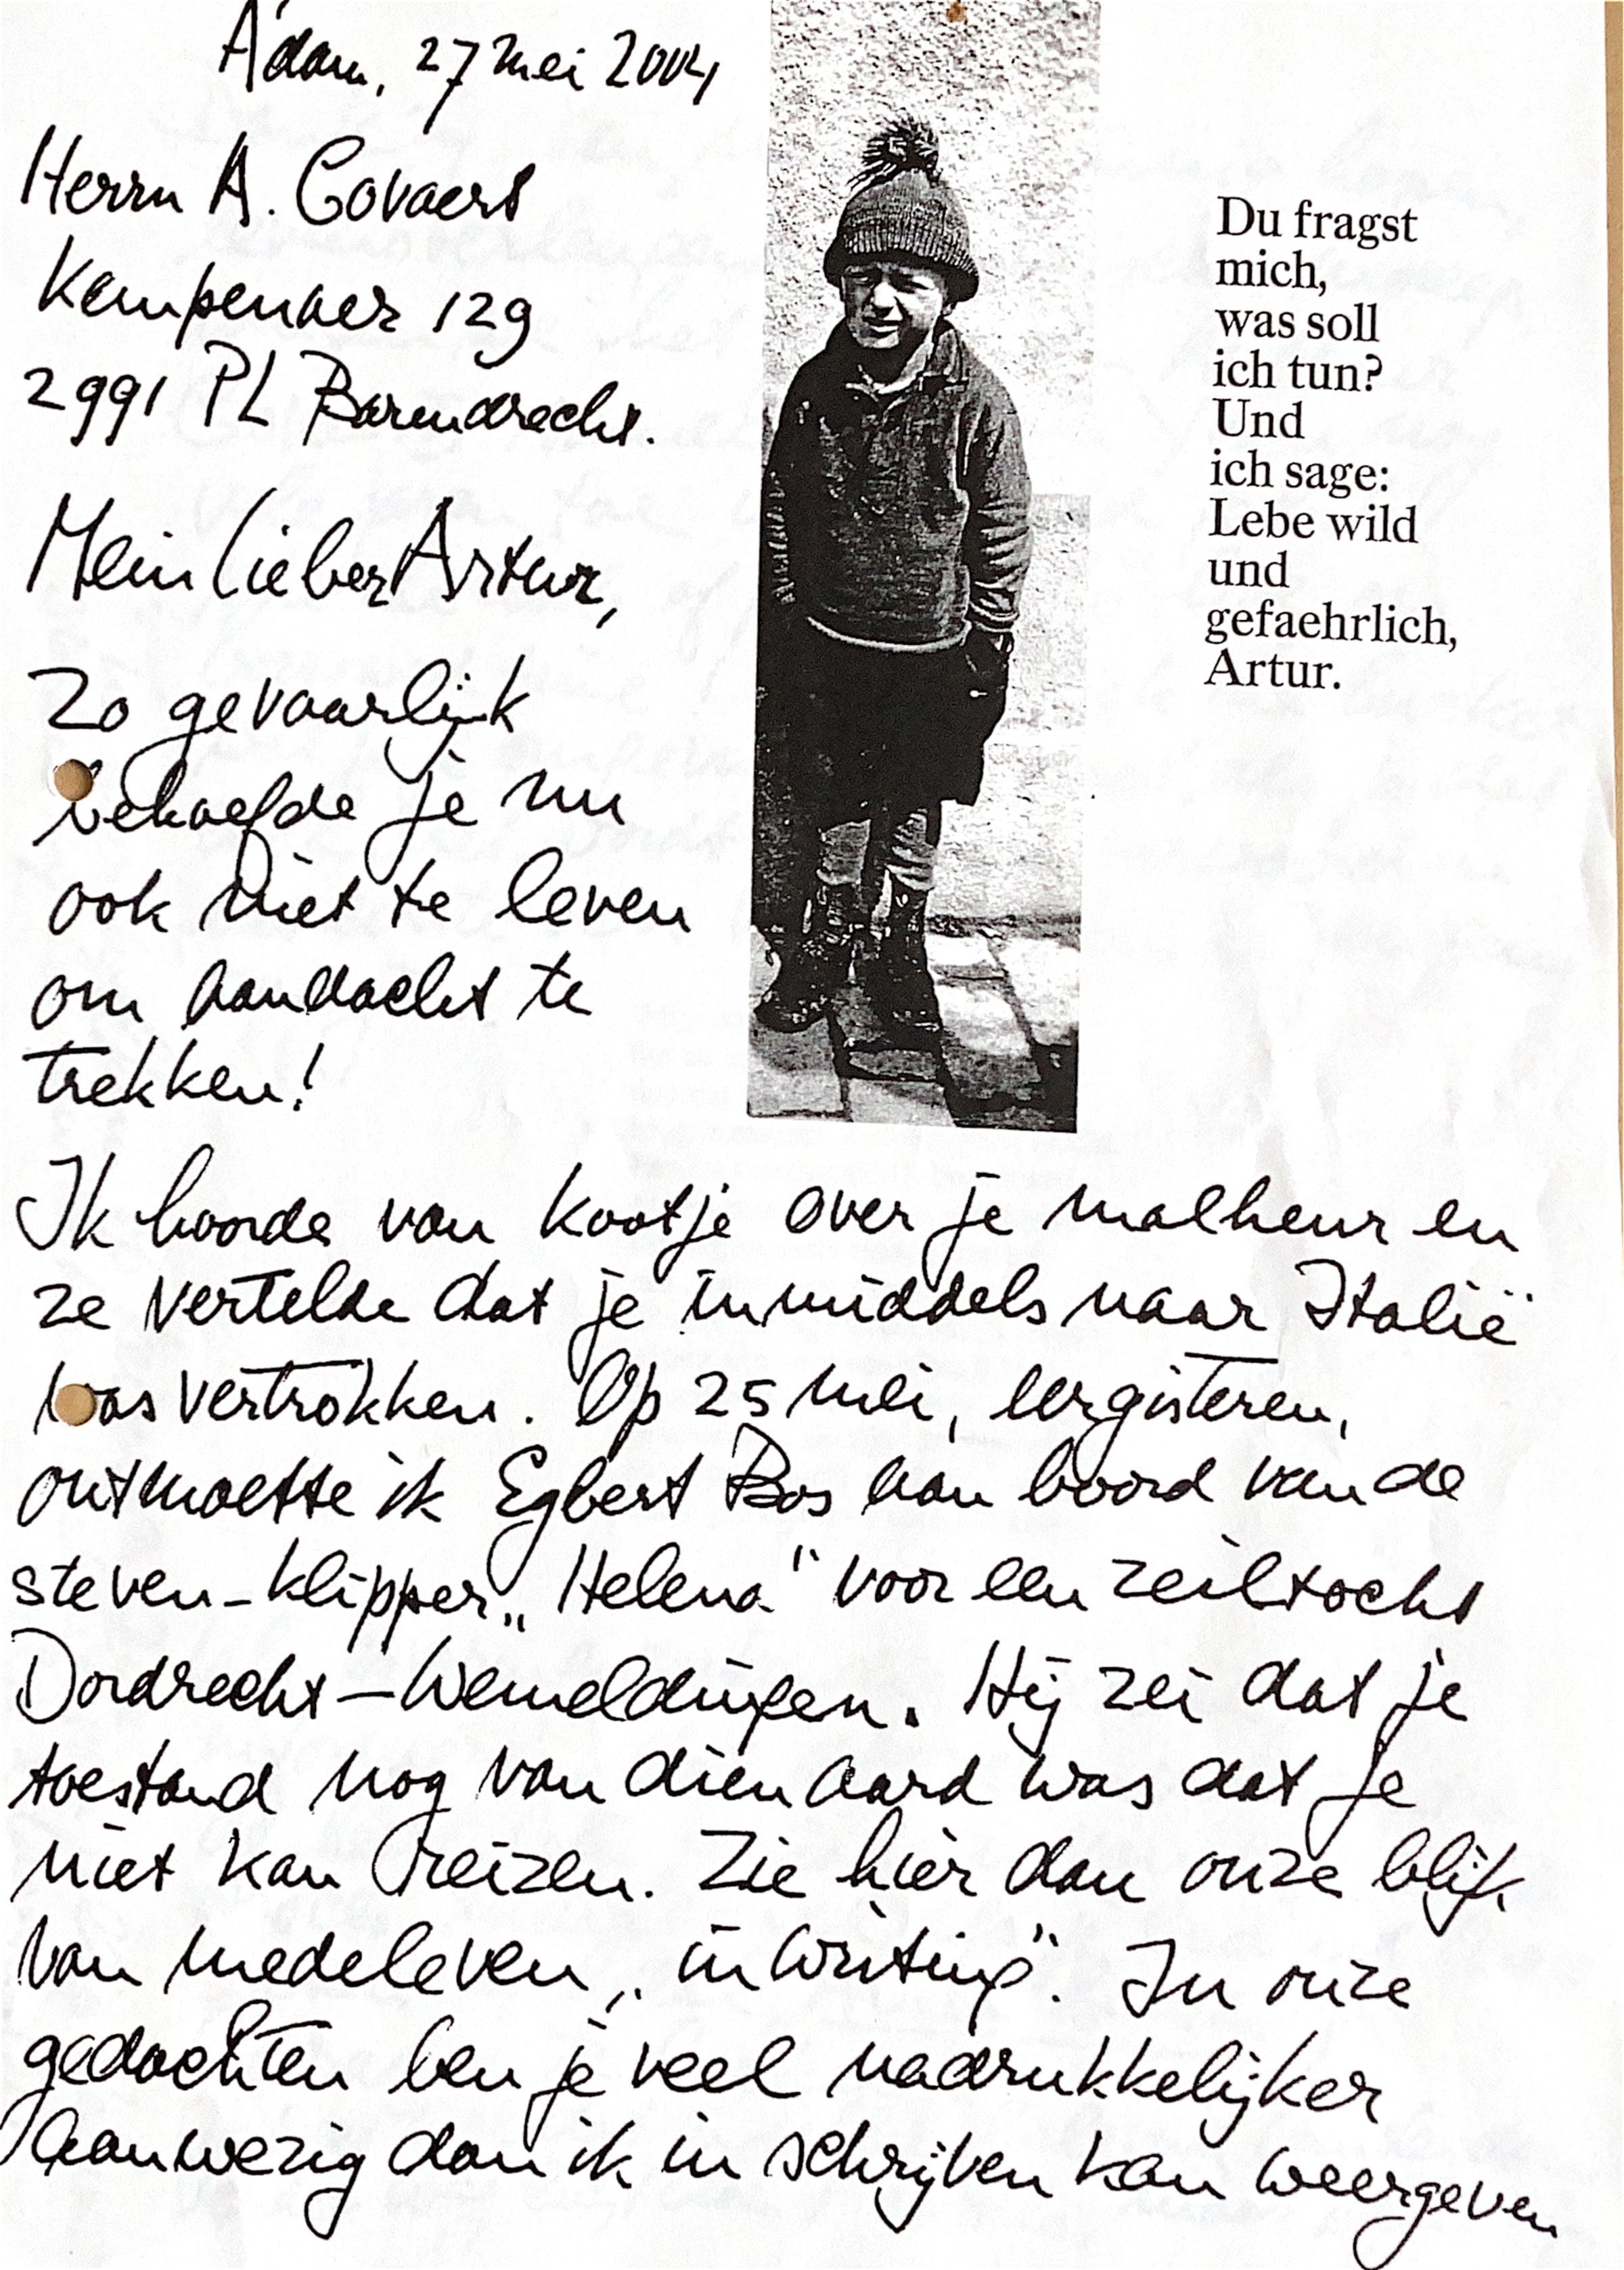 A'dam, 27 mei 2004
Herrn A. Govaers
Kempenaer 129
2991 PL Barendrecht.
Mein lieber Artur,
Zo gevaarlijk
behoefde je nu
ook niet te leven
om aandacht te
trekken!
Du fragst
mich,
was soll
ich tun?
Und
ich sage:
Lebe wild
und
gefaehrlich,
Artur.
Ik hoorde van Kootje over je malheur en
ze vertelde dat je inmiddels naar Italië
was vertrokken. Op 25 mei, eergisteren,
ontmoette ik Egbert Bos aan boord van de
steven-klipper „Helena" voor een zeiltocht
Dordrecht – Wemeldingen. Hij zei dat je
toestand nog van dien aard was dat je
niet kan reizen. Zie hier dan onze blijk
van medeleven „in writing". In onze
gedachten ben je veel nadrukkelijker
aanwezig dan ik in schrijven kan weergeven